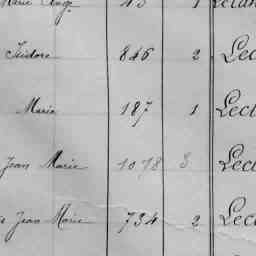 Marie Ange 45 1 Leclan
Isidore 846 2 Lec
Marie 187 1 Lect
Jean Marie 1078 3 Lect
Jean Marie 734 2 Lec